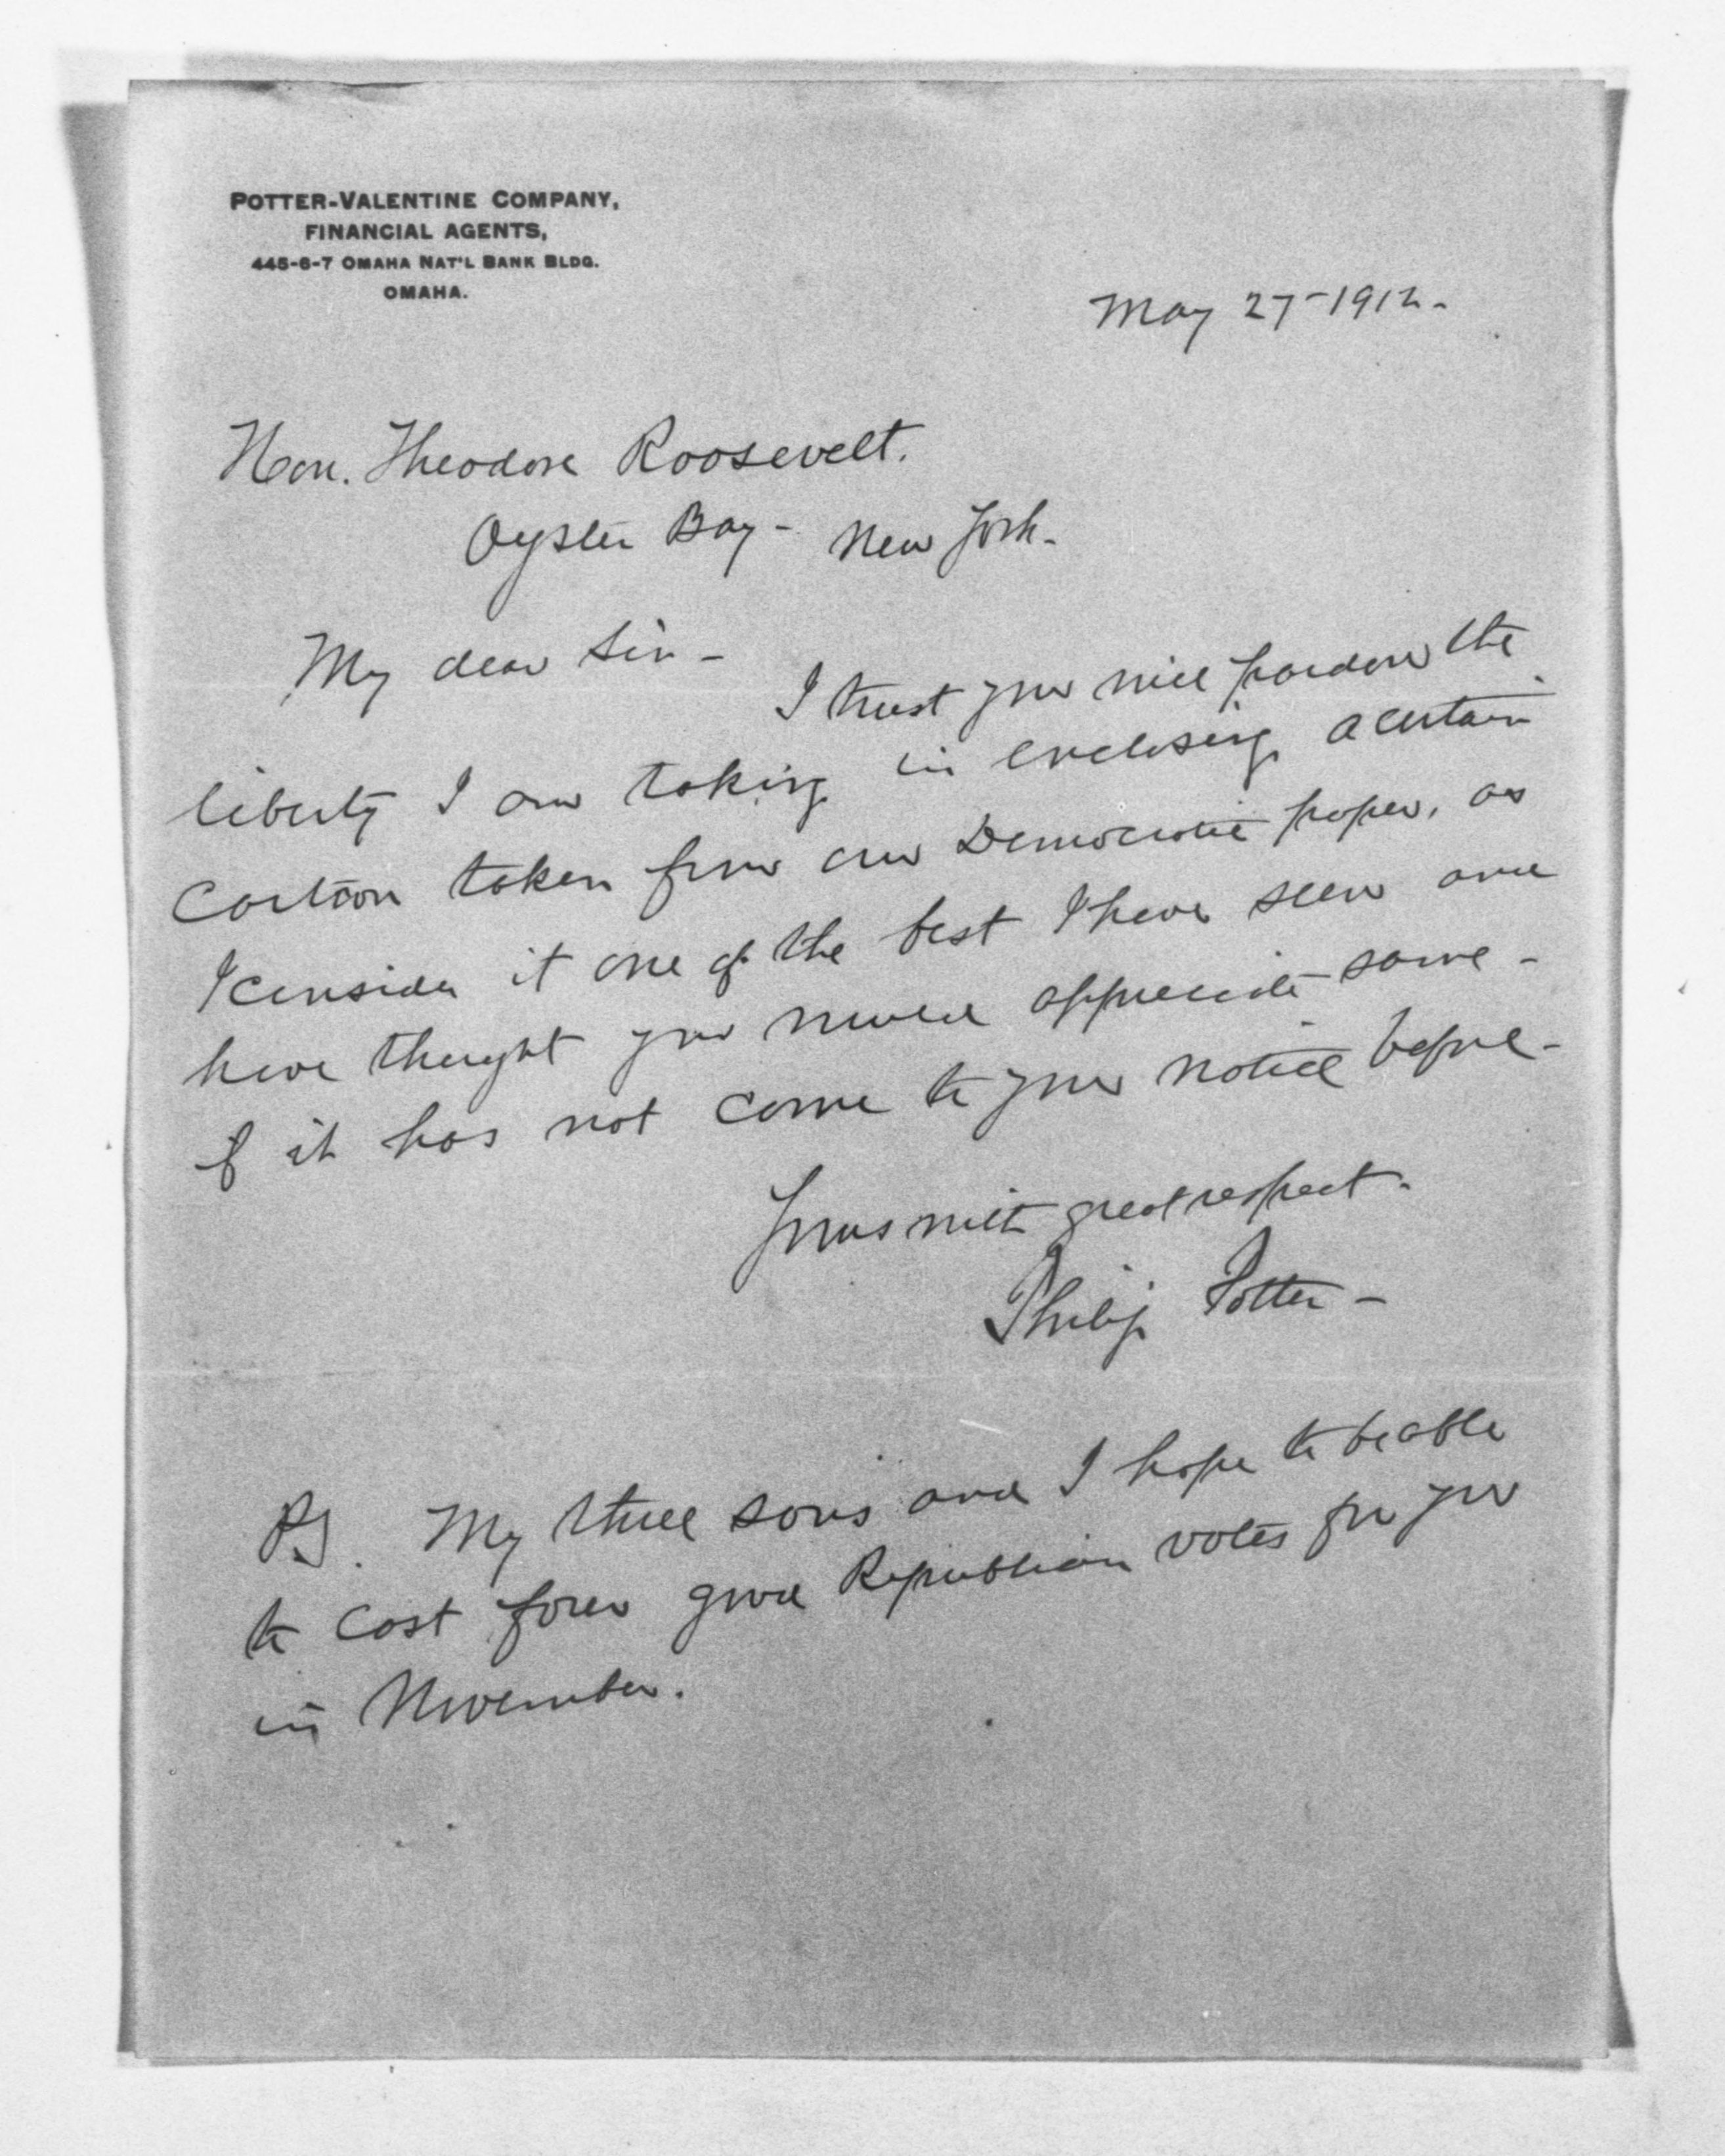 POTTER-VALENTINE COMPANY,
FINANCIAL AGENTS,
445-6-7 OMAHA NAT'L BANK BLDG.
OMAHA.
May 27-1912-
Hon. Theodore Roosevelt.
Oyster Bay- New York-
My dear Sir-
I trust you will pardon the
liberty I am taking in enclosing a certain
Cartoon taken from our Democratic paper, as
I consider it one of the best I have seen and
have thought you would appreciate same-
if it has not come to your notice before-
Yours with great respect.
Philip Potter-
PS. My three sons and I hope to be able
to cast four good Republican votes for you
in November.